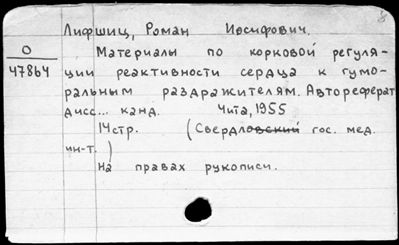 8
Лифшиц, Роман Иосифович.
О
47864
Материалы по корковой регуля-
ции реактивности сердца к гумо-
ральным раздражителям. Автореферат
дисс... канд. Чита, 1955
14стр. (Свердловский гос. мед.
ин-т.)
На правах рукописи.